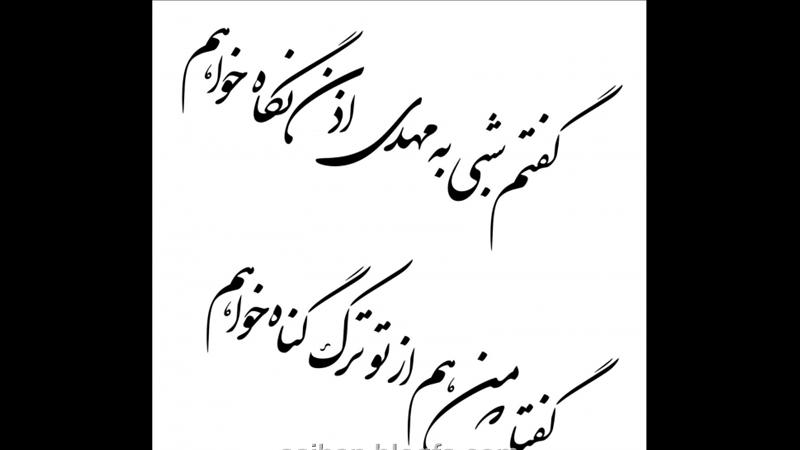 گفتم شبی به مهدی اذن نگاه خواهم
گفتا من هم از تو ترک گناه خواهم